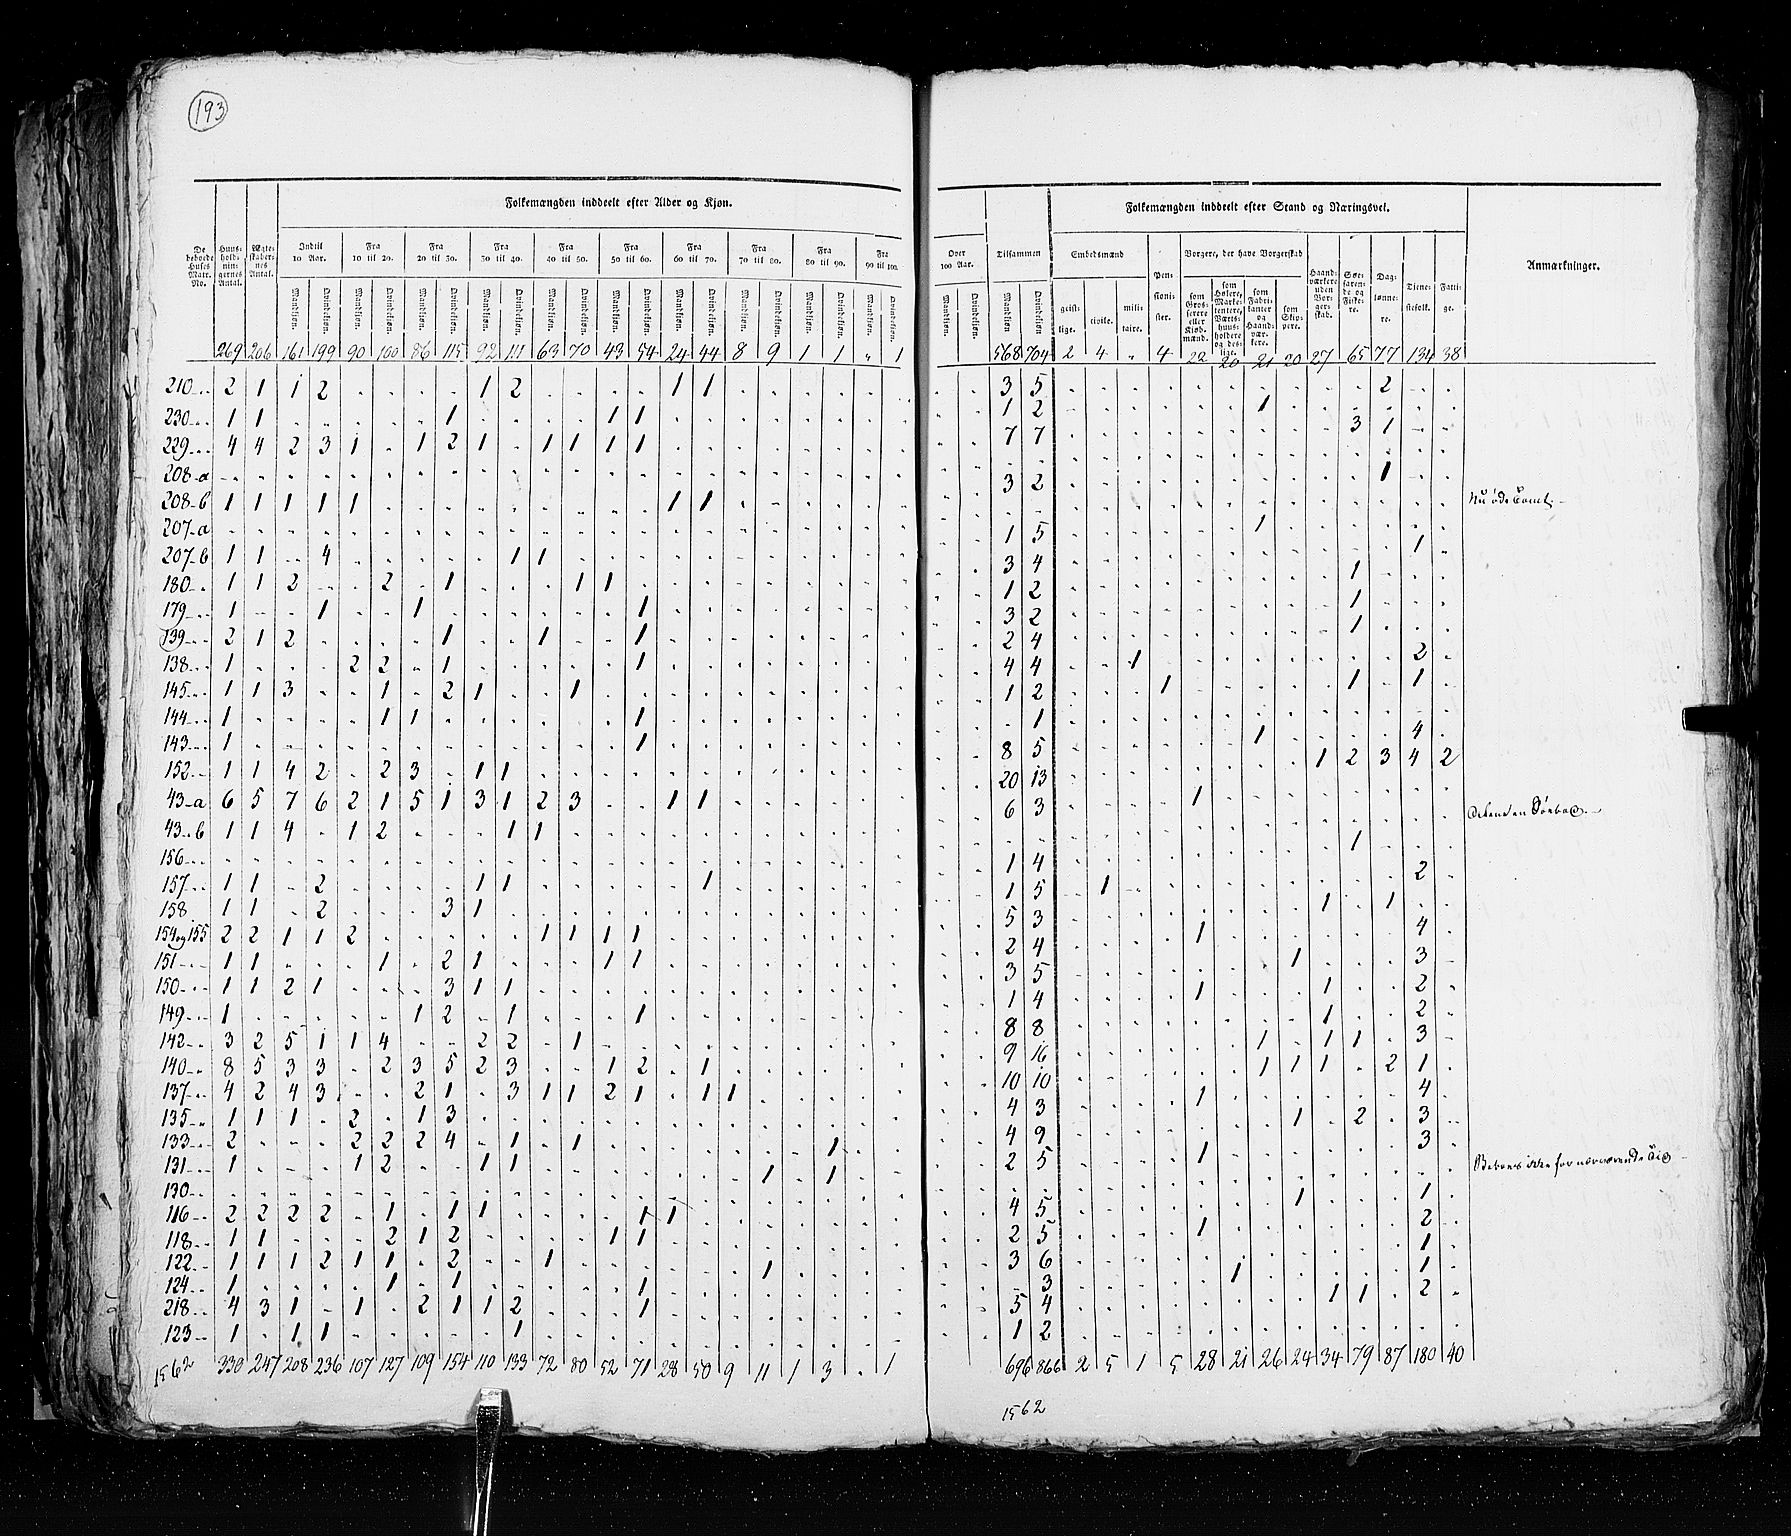 193
Folkemængden inddeelt efter Alder og Kjøn.
Folkemængden inddeelt efter Stand og Næringsvei.
De beboede Huses Matr. No.
Huusholdningernes Antal.
Ægteskabernes Antal.
Indtil 10 Aar.
Fra 10 til 20.
Fra 20 til 30.
Fra 30 til 40.
Fra 40 til 50.
Fra 50 til 60.
Fra 60 til 70.
Fra 70 til 80.
Fra 80 til 90.
Fra 90 til 100.
Over 100 Aar.
Tilsammen
Mandkjøn. Qvindekjøn.
Embedsmænd
geistlige. civile. militaire.
Pensionister.
Borgere, der have Borgerskab
som Grosserere eller Kjøbmænd.
som Høkere, Marketentere, Værtshuusholdere og deslige.
som Fabrikanter og Haandværkere.
som Skippere.
Haandværkere uden Borgerskab.
Søefarende og Fiskere.
Daglønnere.
Tjenestefolk.
Fattige.
Anmærkninger.
269 206 161 199 90 100 86 115 92 111 63 70 43 54 24 44 8 9 1 1 " 1 568 704 2 4 " 4 22 20 21 20 27 65 77 134 38
210 2 1 1 2 . . . . 1 2 . . . . 1 1 3 5 2
230 1 1 1 1 1 1 2 1
229 4 4 2 3 1 . 1 2 1 . 1 1 1 1 7 7 3 1
208-a
208-b 1 1 1 1 1 1 1 3 2 1
207-a
207-b 1 1 4 1 1 1 5 1
180 1 1 2 2 1 1 1 3 4 1
179 1 1 1 1 1 2 1
139 2 1 2 1 1 1 3 2 1
138 1 2 2 1 1 2 4 1
145 1 1 3 1 2 1 1 4 4 1 2
144 1 1 1 1 1 2 1 1 1
143 1 1 1
152 1 1 4 2 . 2 3 . 1 1 8 5 1 4
43-a 6 5 7 6 2 1 5 1 3 1 2 3 . . 1 1 20 13 1 2 3 4 2
43-b 1 1 4 . 1 2 1 1 6 3 1
156
157 1 1 2 1 1 1 1 4 1
158 1 1 2 3 1 1 5 1 2
154 og 155 2 2 1 1 2 1 1 1 1 5 3 1 1
151 1 1 1 2 1 1 1 2 4 1 4
150 1 1 2 1 3 1 1 3 5 1 3
149 1 1 2 1 1 1 4 1 1 2
142 3 2 5 1 1 4 2 2 1 8 8 1 2
140 8 5 3 3 . 2 3 5 2 3 . . 1 2 . 1 9 16 1 1 1 3
137 4 2 4 3 . . 2 1 . 3 1 1 2 1 . 1 1 10 10 1 1 1 2 1
135 1 1 1 . 2 . 1 3 4 3 1 4
133 2 2 2 2 4 . 1 . 1 1 4 9 1 2 3
131 1 1 2 1 1 1 1 2 5 1 3
130
116 2 2 2 2 . 1 . 1 1 1 1 4 5 1 1
118 1 1 2 1 2 1 1 2 5 1 2
122 1 1 1 2 1 1 . 2 . . 1 1 3 6 1
124 1 1 1 1 3 1 1
218 4 3 1 . 1 . 2 1 1 2 1 5 4 1 1 2
123 1 . 1 1 1 1 2
1562 330 247 208 236 107 127 109 154 110 133 72 80 52 71 28 50 9 11 1 3 . 1 696 866 2 5 1 5 28 21 26 24 34 79 87 180 40
1562